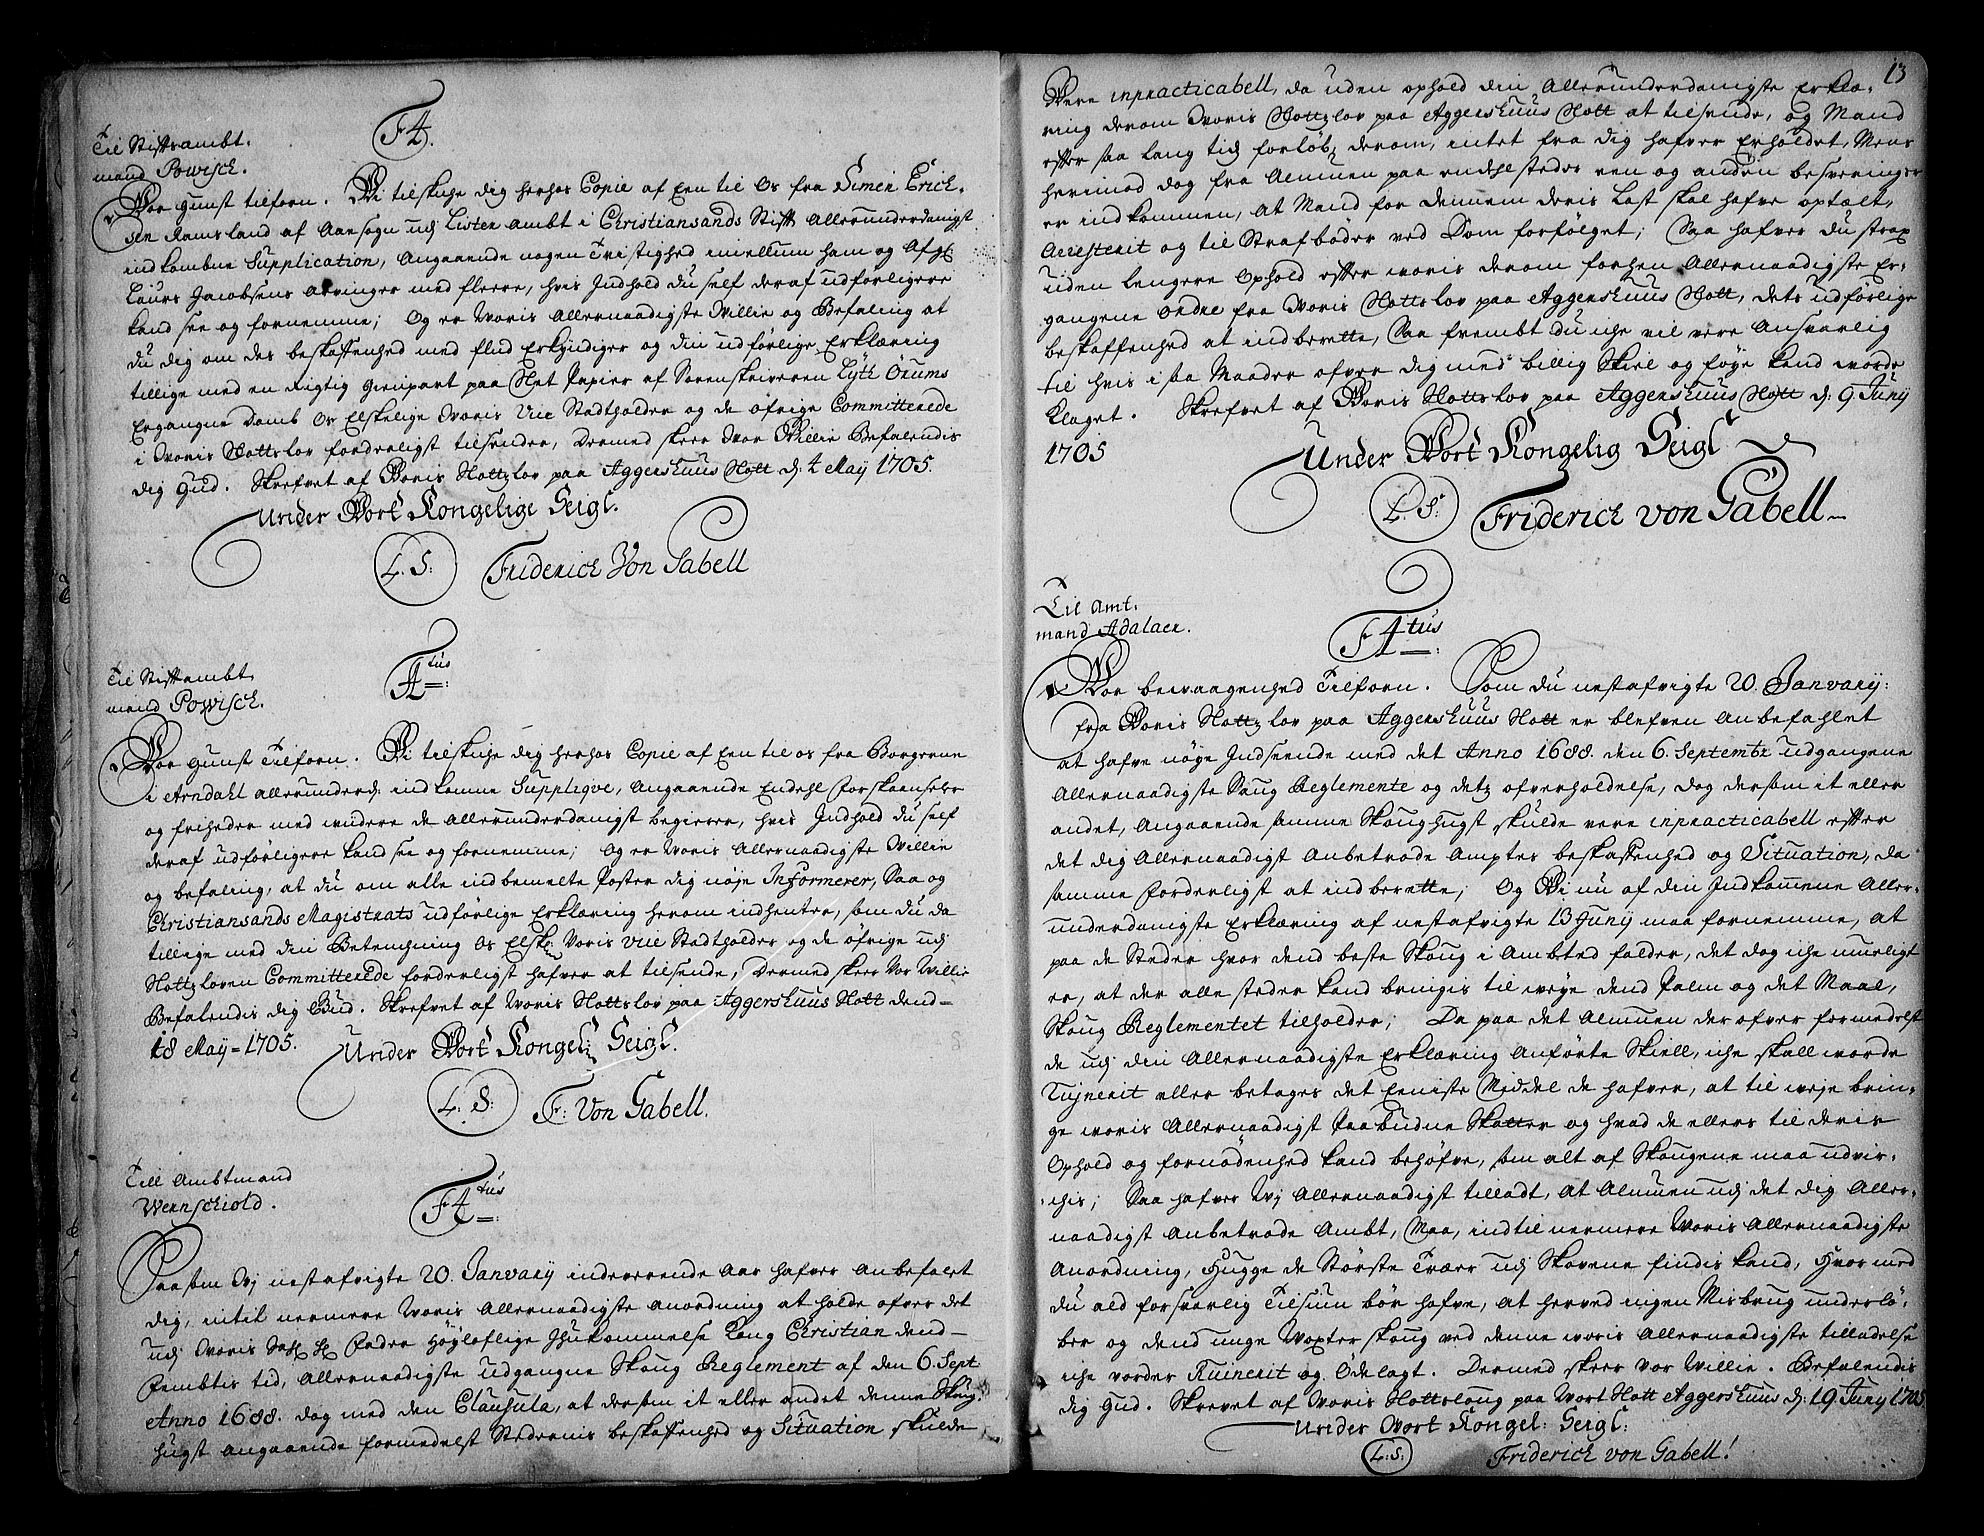 F4.
Til Stiftsambt-
mand Powisch.
Vor gunst tilforn. Vi tilskiche dig herhos Copie af Een til Os fra Simen Erich-
sen Ramsland af Aansogn udj Lister Ambt i Christiansands Stift Allerunderdanigst
indkomne Supplication, Angaaende nogen Tvistighed imellum ham og Afg:
Laurs Jacobsens Arvinger med fleere, hvis Indhold du self deraf udførligere
kand see og fornemme; Og er Woris Allernaadigste Willie og Befaling at
du dig om des beskaffenhed med fliid Erkyndiger og din udførlige Erklæring
tillige med en Rigtig Gienpart paa Slet Papier af Sorenskriveren Lytk Orums
Ergangne Domb Os Elskelige Woris Vice Stadtholder og de øfrige Committerede
i Woris Slottslov forderligst tilsender, Dermed skeer Wor Willie Befalendis
dig Gud. Skrefvet af Woris Slottzlov paa Aggershuus Slott d: 4 May 1705.
Under Wort Kongelige Seigl.
L. S: Friderich Von Gabell
F4tus
Til Stiftambt
mand Powisch.
Vor Gunst Tilforn. Vi tilskiche dig herhos Copie af Een til os fra Borgerne
i Arndahl allerunderd: indkomne Supplique, Angaaende Endehl Forskaanseler
og friheder med widere de Allerunderdanigst begierer, hvis Indhold du self
deraf udførligere kand see og fornemme; Og er Woris Allernaadigste Willie
og befaling, at du om alle indbemelte Poster dig nøje Informerer, Saa og
Christiansands Magistrats udførlige Erklæring herom indhenter, som du da
tillige med din Betenchning Os Elsk: Voris Vice Stadtholder og de øfrige udj
Slottzloven Committerede forderligst hafver at tilsende, Dermed skeer Vor Willie
Befalendis dig Gud. Skrefvet af Woris Slottslov paa Aggershuus Slott dend-
18 May-1705.
Under Wort Kongel: Seigl.
L: S: F: Von Gabell.
Till Ambtmand
Wernschiold.
F4tus
Saasom Wj nestafvigte 20. January indeværende Aar hafver Anbefalet
dig, intil nermere Woris Allernaadigste Anordning at holde ofver det
udj Woris Sal: H: Fader Høyloflige Ihukommelse Kong Christian dend-
Fembtis tid, Allernaadigste udgangne Skoug Reglement af den 6. Sept
Anno 1688. dog med den Clausula, at dersom it eller andet denne Skoug-
hugst angaaende formedelst Stedernis beskaffenhed og Situation skulde
13
Vere inpracticabell, da uden ophold din Allerunderdanigste Erklæ-
ring derom Woris Slottzlov paa Aggershuus Slott at tilsende, og Mand
efter saa lang tid forløb, derom, intet fra dig hafver Erholdet, Mens
herimod dog fra Almuen paa endehl steder een og anden besveringer
er indkommen, At Mand for dennem deris Last skal hafve optælt,
Arresterit og til Strafbøder ved Dom forfølget; Saa hafver du strax
uden lengere Ophold efter Woris derom forhen Allernaadigste Er-
gangene Ordre fra Woris Slottslov paa Aggershuus Slott, dets udførlige
beskaffenhed at indberette, Saa frembt du iche vil vere Ansvarlig
til hvis i saa Maader ofver dig med billig Skiel og føye kand worde
klaget. Skrefvet af Woris Slottslov paa Aggershuus Slott d: 9 Juny
1705
Under Wort Kongelig Seigl
L: S: Friderich von Gabell
Til Amt-
mand Adalaer.
F4tus
Vor bevaagenhed Tilforn. Som du nestafvigte 20. January:
fra Woris Slottzlov paa Aggershuus Slott er blefven Anbefahlet
at hafve nøye Indseende med det Anno 1688. den 6. Septembr udgangene
Allernaadigste Skoug Reglemente og detz ofverholdelse, dog dersom it eller
andet, Angaaende samme Skoughugst skulde vere inpracticabell efter
det dig Allernaadigst Anbetrode Ampter beskaffenhed og Situation, da
samme forderligst at indberette; Og Vi nu af din Indkommene Aller-
underdanigste Erklæring af nestafvigte 13 Juny maa fornemme, at
paa de Steder hvor dend beste Skoug i Ambted falder, det dog iche mueligt
er, at der alle steder kand bringis til weye dend Palm og det Maal,
Skoug Reglementet tilholder; Da paa det Almuen der ofver formedelst
de udj din Allernaadigste Erklæring Anførte Skiell, iche skall worde
Ruinerit eller betages det Eeniste Middel de hafver, at til weje brin-
ge woris Allernaadigst Paabudne Skatter og hvad de ellers til deris
Ophold og fornødenhed kand behøfve, som alt af Skougene maa udvir-
chis; Saa hafver Wj Allernaadigst tilladt, At Almuen udj det dig Aller-
naadigst Anbetrode Ambt, Maa, indtil nermere Woris Allernaadigste
Anordning, Hugge de Største Træer udj Skovene findis kand, Hvor med
du ald forsvarlig Tilsiun bør hafve, at herved ingen Misbrug underlø-
ber og dend unge Voxter Skoug ved denne woris Allernaadigste tilladelse
iche vorder Ruinerit og Ødelagt. Dermed skeer vor Willie. Befalendis
dig Gud. Skrevet af Woris Slottsloug paa Wort Slott Aggershuus d: 19 Juny 1705
Under Wort Kongel: Seigl:
L: S: Friderich von Gabell!